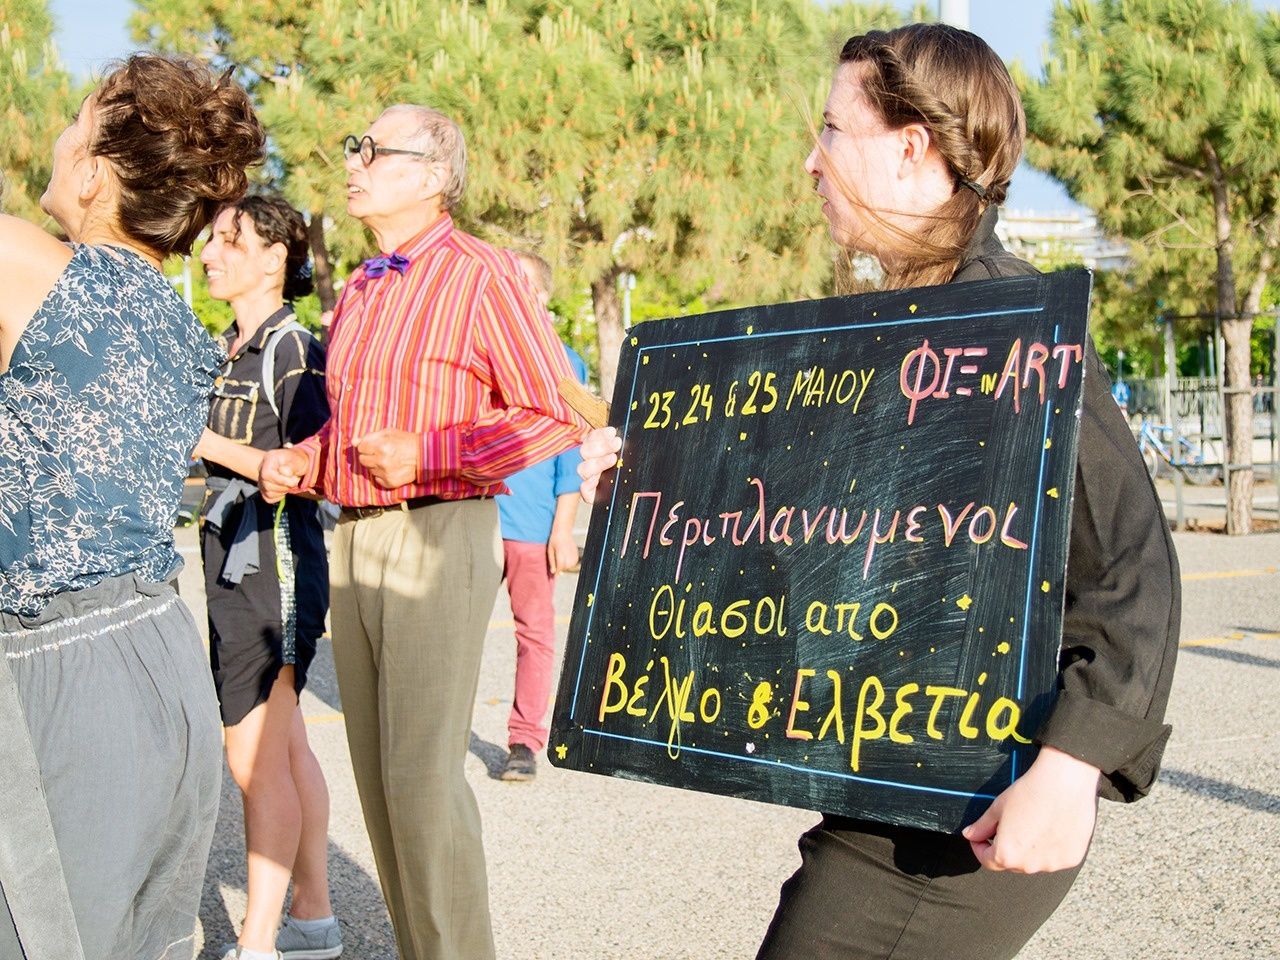 23, 24 & 25 ΜΑΙΟΥ ΦΙΞ IN ART
Περιπλανώμενοι
Θίασοι από
Βέλγιο & Ελβετία